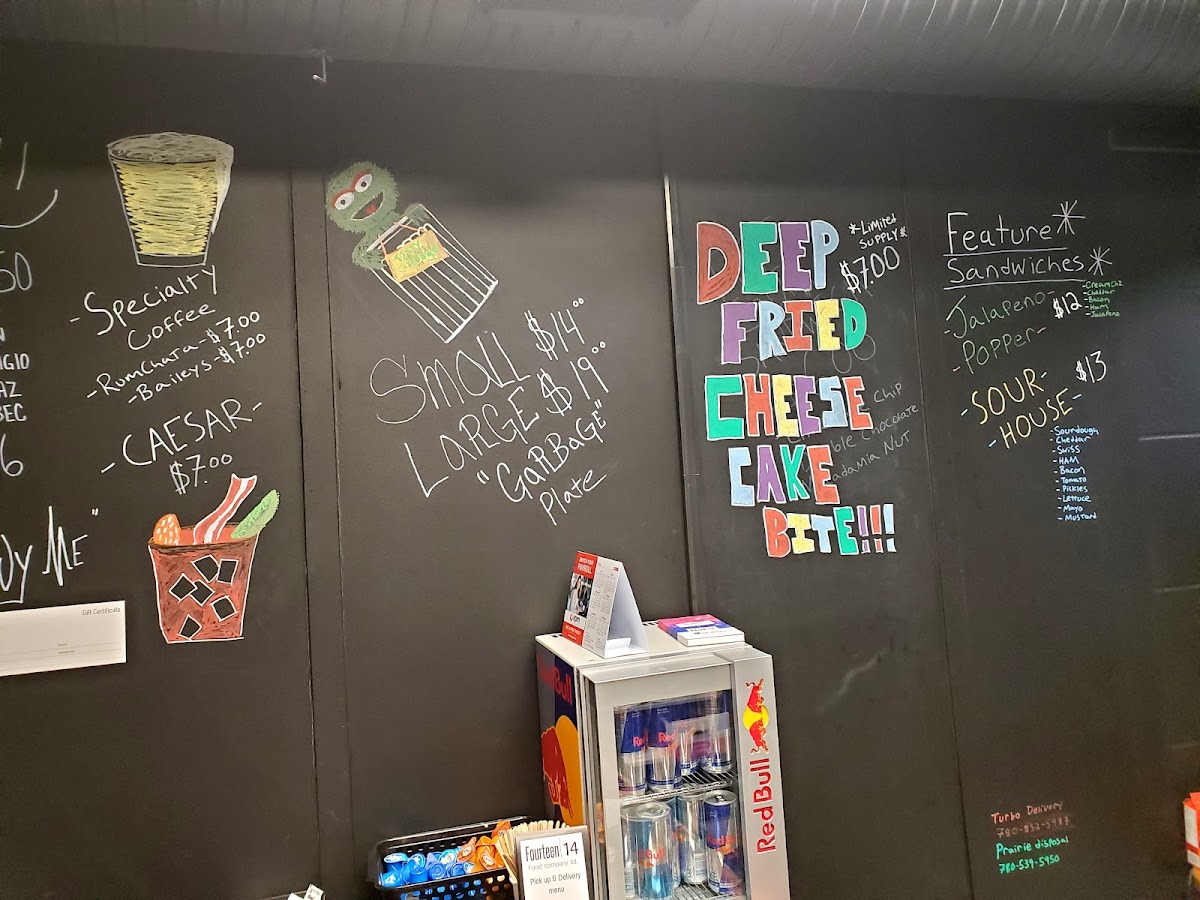 50
GIO
AZ
BEC
6
Me"
Gift Certificate
-Specialty
Coffee
-RumChata-$7.00
-Baileys-$7.00
-CAESAR-
$7.00
Small $14°°
LARGE $19°°
"GARBAGE"
Plate
DEEP
FRIED
CHEESE
CAKE
BITE!!!
*Limited
SUPPLY*
$7.00
Chip
Chocolate
Nut
Feature*
Sandwiches*
-Jalapeno-
-Popper-
$12
-Cream Chz
-Cheddar
-Bacon
-Ham
-Jalapeno
-SOUR-
-HOUSE-
$13
-Sourdough
-Cheddar
-Swiss
-HAM
-Bacon
-Tomato
-Pickles
-Lettuce
-Mayo
-Mustard
PAYROLL
Red Bull
Red Bull
Fourteen|14
Food company ltd.
Pick up & Delivery
menu
Turbo Delivery
780-832-5987
Prairie disposal
780-539-5950